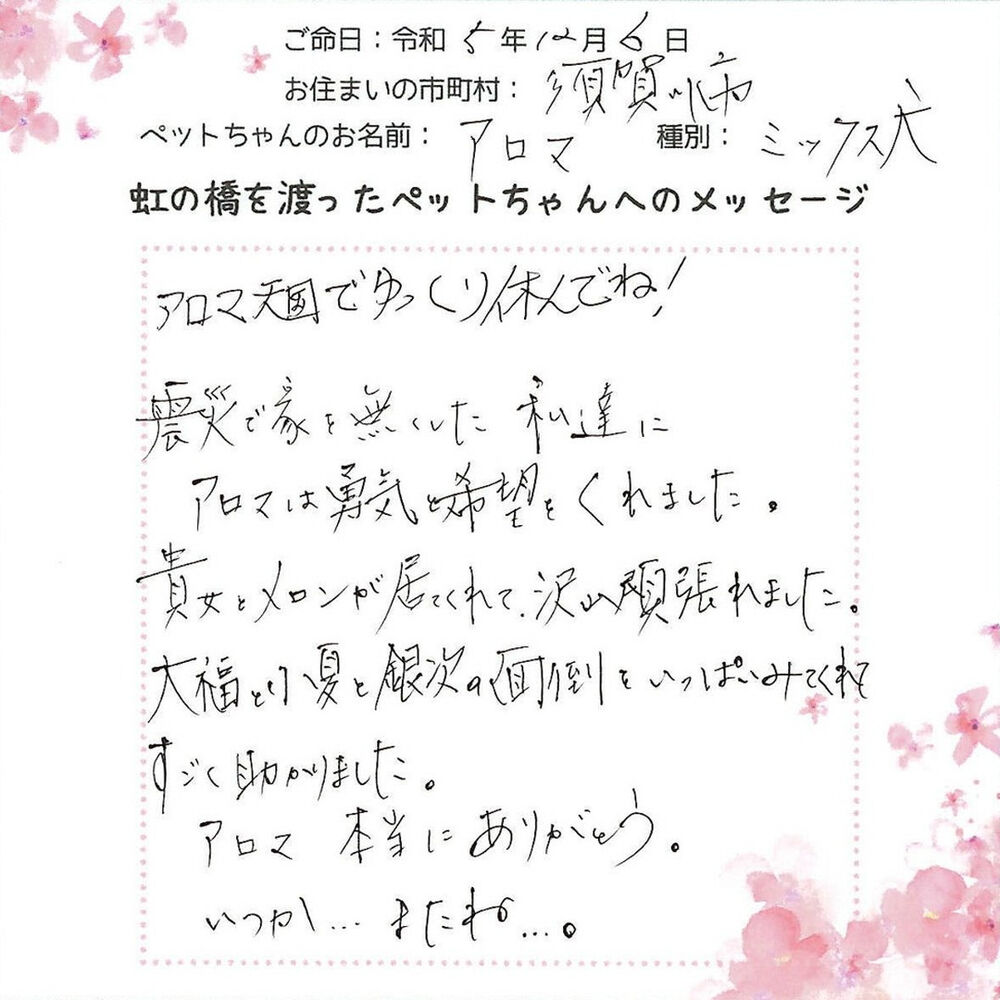 ご命日：令和 5年12月6日
お住まいの市町村： 須賀川市
ペットちゃんのお名前： アロマ 種別： ミックス犬
虹の橋を渡ったペットちゃんへのメッセージ
アロマ天国でゆっくり休んでね！
震災で家を無くした 私達に
アロマは勇気と希望をくれました。
貴女とメロンが居てくれて、沢山頑張れました。
大福と小夏と銀次の面倒をいっぱいみてくれて
すごく助かりました。
アロマ 本当にありがとう。
いつか… またね…。